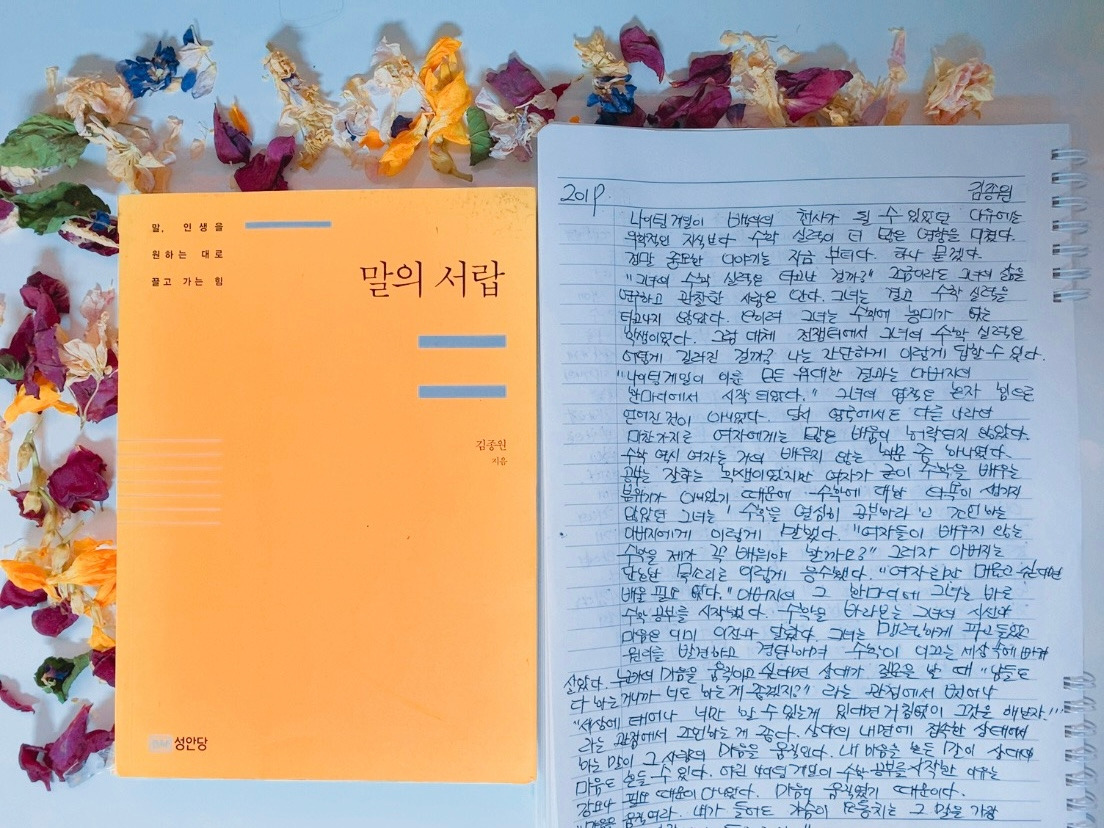 말, 인생을
원하는 대로
끌고 가는 힘
말의 서랍
김종원
지음
BM 성안당
201P.
김종원
나이팅게일이 백의의 천사가 될 수 있었던 이유에는
의학적인 지식보다 수학 실력이 더 많은 영향을 미쳤다.
정말 중요한 이야기는 지금 부터다. 하나 묻겠다.
"그녀의 수학 실력은 타고난 걸까?" 조금이라도 그녀의 삶을
연구하고 관찰한 사람은 안다. 그녀는 결코 수학 실력을
타고나지 않았다. 오히려 그녀는 수학에 흥미가 없는
학생이었다. 그럼 대체 전쟁터에서 그녀의 수학 실력은
어떻게 길러진 걸까? 나는 간단하게 이렇게 답할 수 있다.
"나이팅게일이 이룬 모든 위대한 결과는 아버지의
한마디에서 시작 되었다." 그녀의 업적은 혼자 힘으로
얻어진 것이 아니었다. 당시 영국에서도 다른 나라와
마찬가지로 여자에게는 많은 배움이 허락되지 않았다.
수학 역시 여자는 거의 배우지 않는 학문 중 하나였다.
공부는 잘하는 학생이었지만 여자가 굳이 수학을 배우는
분위기가 아니었기 때문에 수학에 대한 의욕이 생기지
않았던 그녀는 수학을 열심히 공부하라고 조언하는
아버지에게 이렇게 말했다. "여자들이 배우지 않는
수학을 제가 꼭 배워야 할까요?" 그러자 아버지는
단호한 목소리로 이렇게 응수했다. "여자라서 배울
배울 필요 없다." 아버지의 그 한마디에 그녀는 바로
수학 공부를 시작했다. 수학을 바라보는 그녀의 시선과
마음은 이미 이전과 달랐다. 그녀는 맹렬하게 파고들었고
원리를 발견하고 결합하며 수학이 이끄는 세상 속에 빠져
살았다. 누군가의 마음을 움직이고 싶다면 상대가 질문을 할 때 "남들도
다 하는 거니까 너도 하는 게 좋겠지?" 라는 관점에서 벗어나
"세상에 태어나 너만 할 수 있는게 있다면 거침없이 그것을 해보자!"
라는 관점에서 조언하는게 좋다. 상대의 내면에 접속한 상태에서
하는 말이 그 사람의 마음을 움직인다. 내 마음을 흔든 말이 상대의
마음도 흔들 수 있다. 어린 나이팅게일이 수학 공부를 시작한 이유는
강요나 필요 때문이 아니었다. 마음이 움직였기 때문이다.
"마음을 움직여라. 내가 들어도 가슴이 요동치는 그 말을 가장